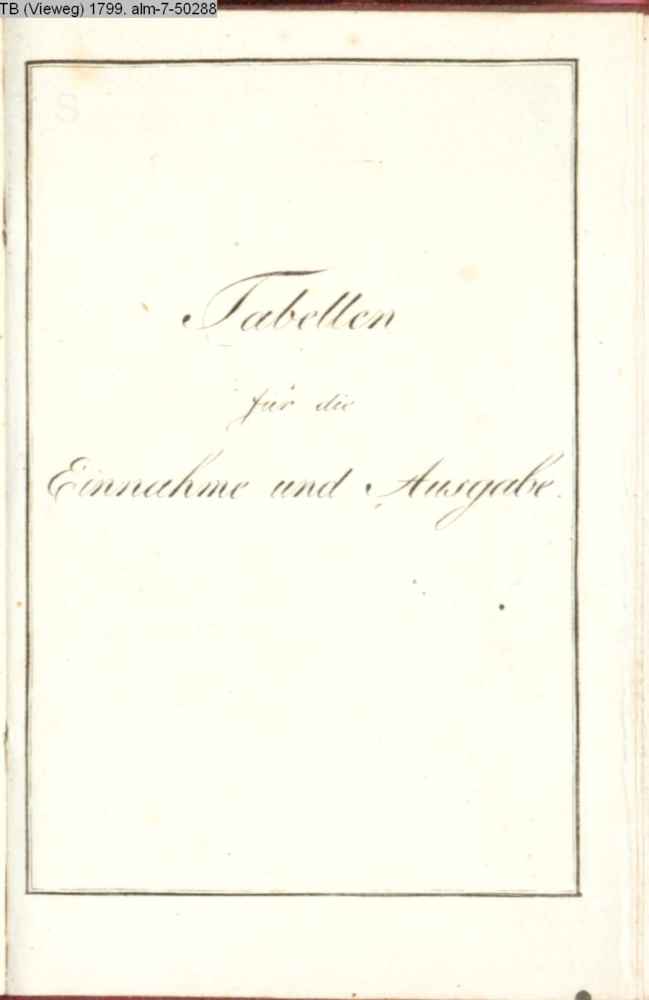 TB (Vieweg) 1799. alm-7-50288
Tabellen
für die
Einnahme und Ausgabe.